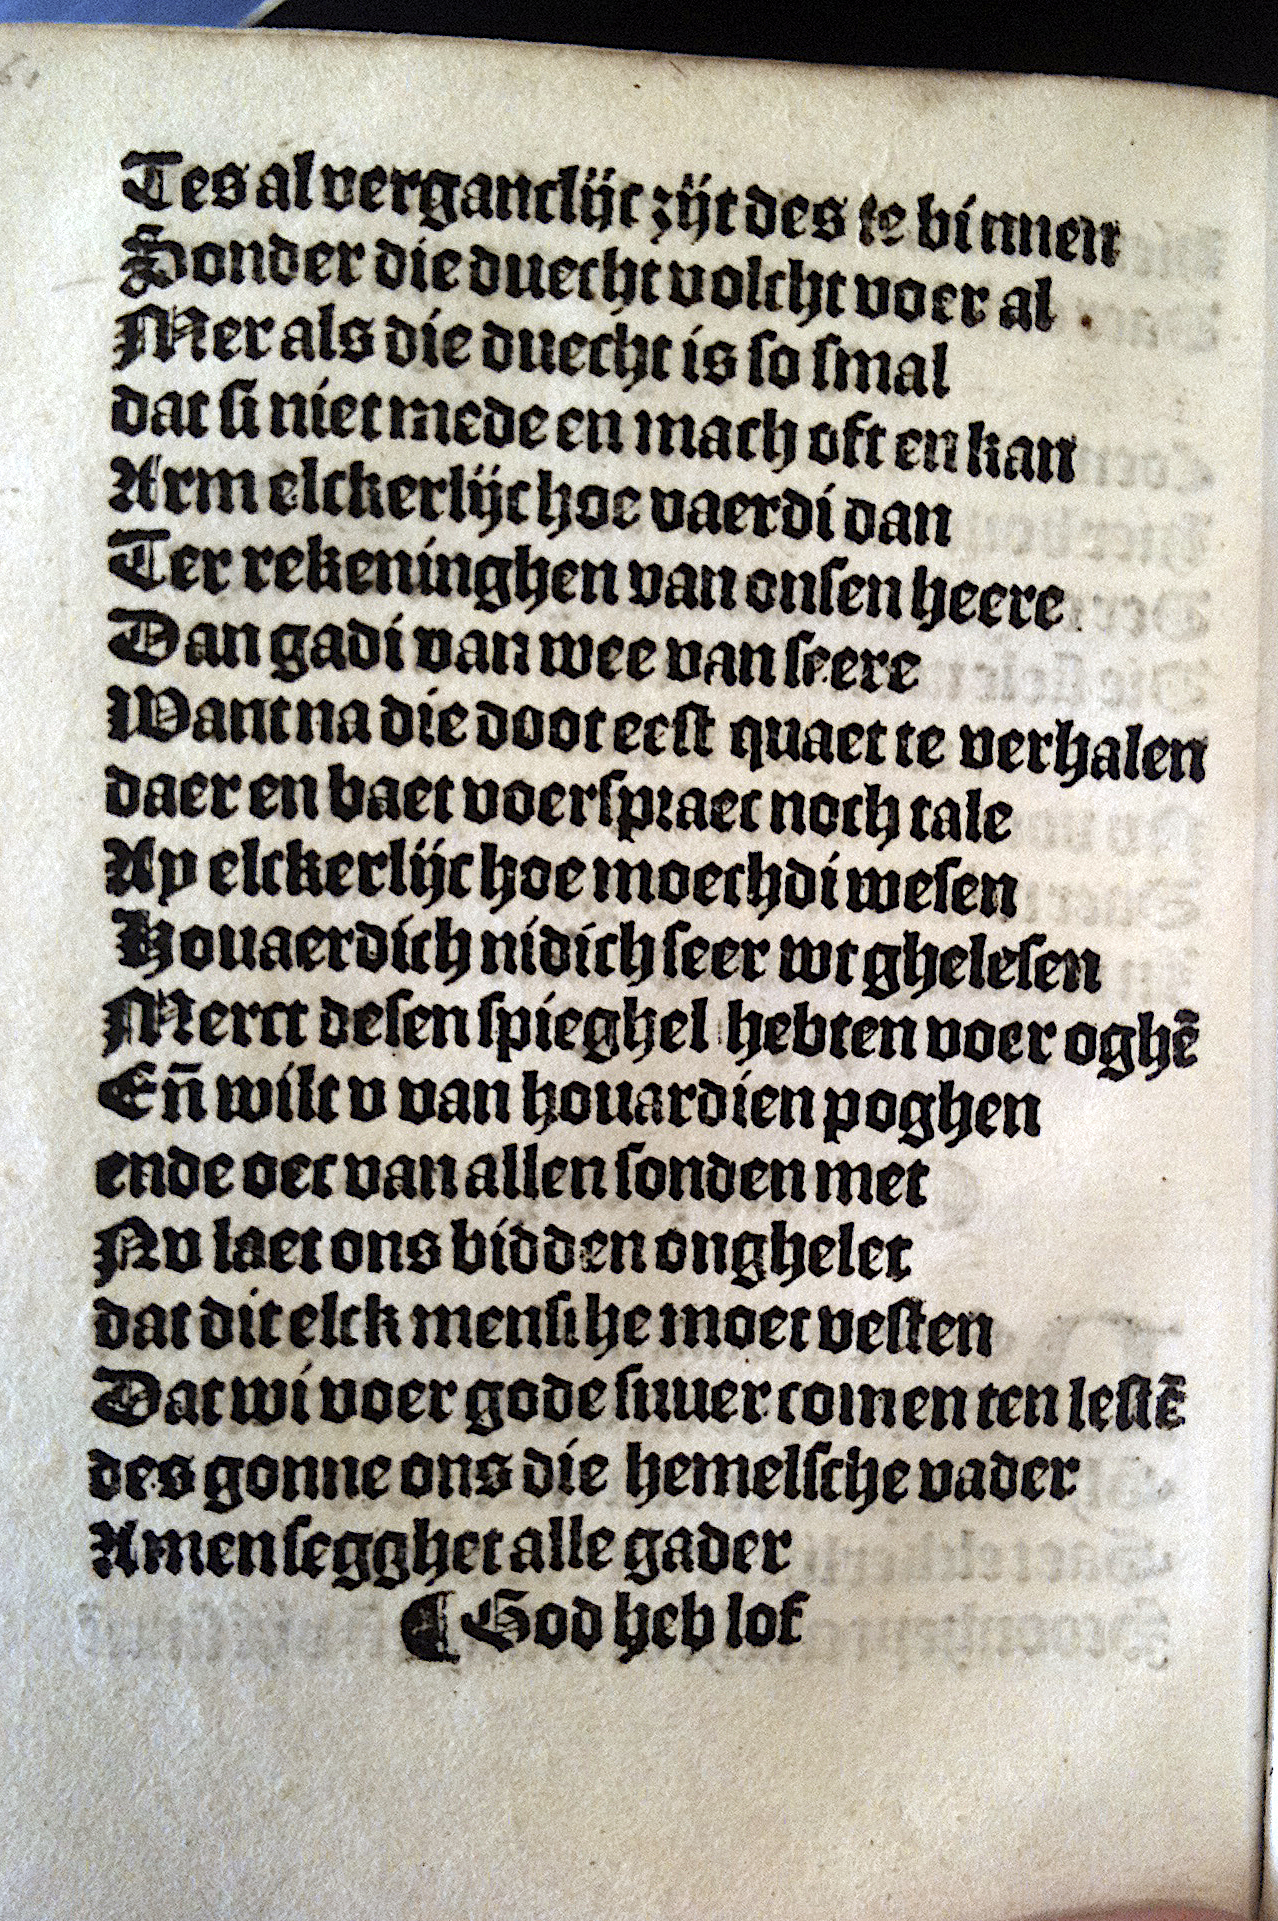 Tes al verganclijc zijt des te binnen
Sonder die duecht volcht voer al
Mer als die duecht is so smal
dat si niet mede en mach oft en kan
Arm elckerlijc hoe vaerdi dan
Ter rekeninghen van onsen heere
Dan gadi van wee van seere
Want na die doot eest quaet te verhalen
daer en baet voerspraec noch tale
Ay elckerlijc hoe moechdi wesen
Houaerdich nidich seer wt ghelesen
Merct desen spieghel hebten voer oghē
Eñ wilt v van houardien poghen
ende oec van allen sonden met
Nv laet ons bidden onghelet
dat dit elck mensche moet vesten
Dat wi voer gode suuer comen ten lestē
des gonne ons die hemelsche vader
Amen segghet alle gader
¶ God heb lof